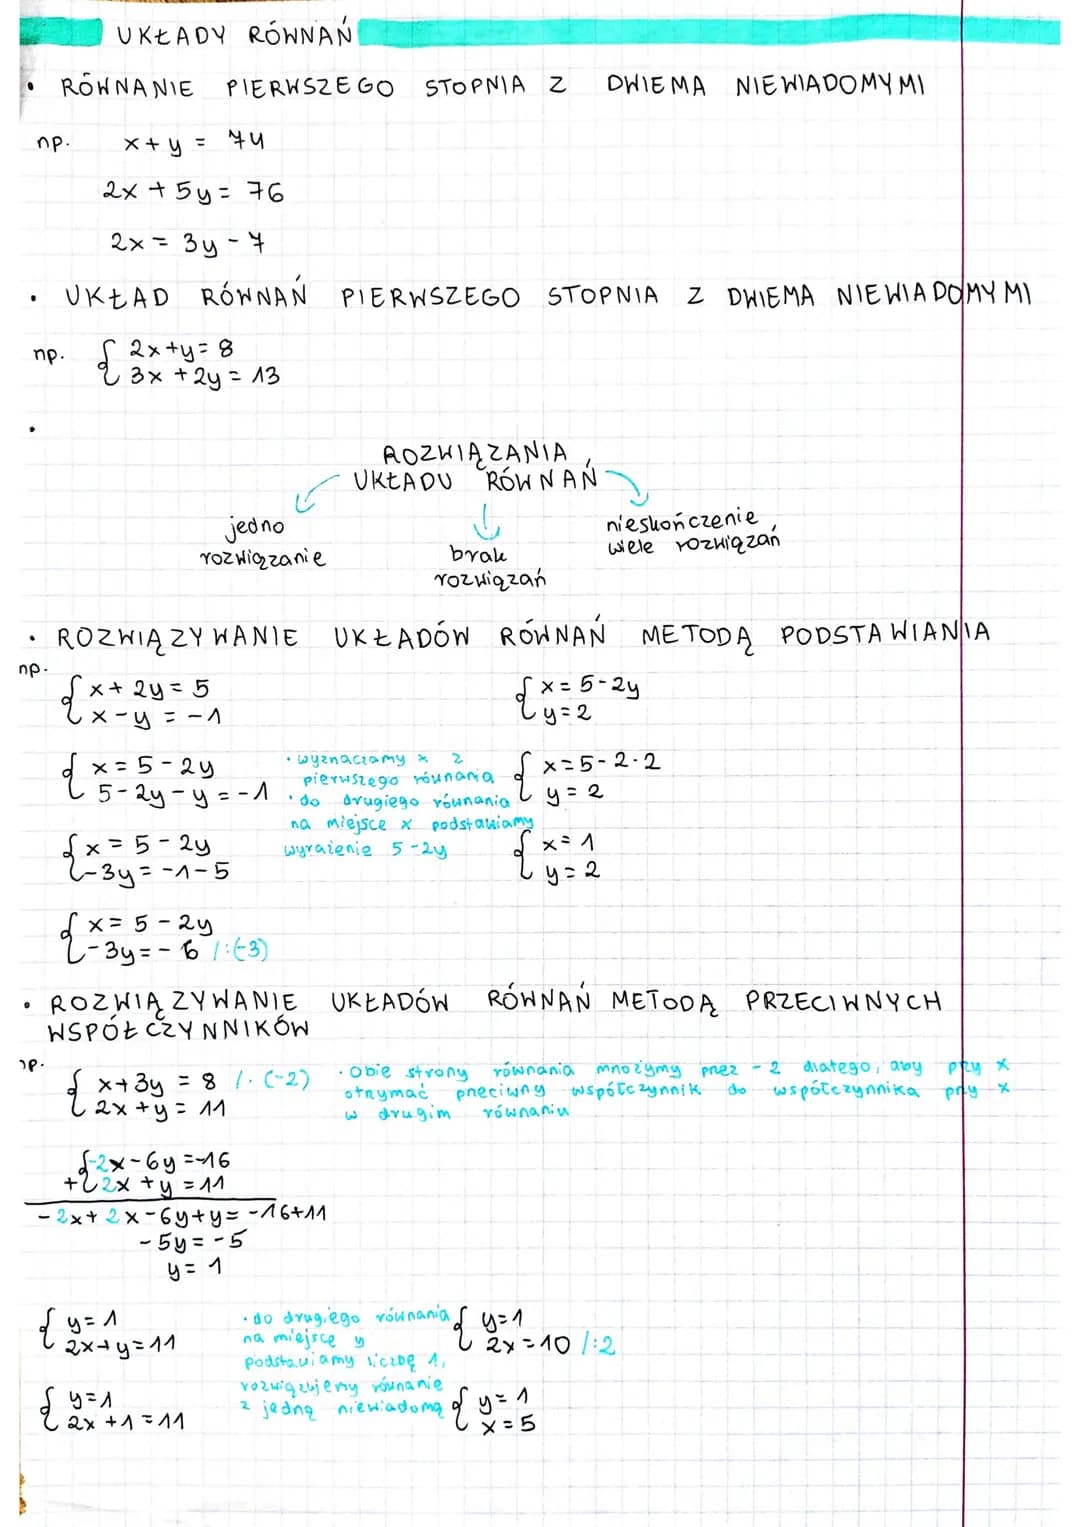 UKŁADY RÓWNAŃ
• RÓWNANIE PIERWSZEGO STOPNIA Z DWIEMA NIEWIADOMYMI
np. x+y = 74
2x + 5y = 76
2x = 3y - 7
• UKŁAD RÓWNAŃ PIERWSZEGO STOPNIA Z DWIEMA NIEWIADOMYMI
np. { 2x+y = 8
3x + 2y = 13
•
ROZWIĄZANIA
UKŁADU RÓWNAŃ
jedno
rozwiązanie
brak
rozwiązań
nieskończenie
wiele rozwiązań
• ROZWIĄZYWANIE UKŁADÓW RÓWNAŃ METODĄ PODSTAWIANIA
np.
{ x + 2y = 5
x - y = -1
{ x = 5 - 2y
5 - 2y - y = -1
• wyznaczamy x z
pierwszego równania
• do drugiego równania
na miejsce x podstawiamy
wyrażenie 5-2y
{ x = 5 - 2y
-3y = -1-5
{ x = 5 - 2y
-3y = - 6 /:(-3)
{ x = 5-2y
y = 2
{ x = 5-2·2
y = 2
{ x = 1
y = 2
• ROZWIĄZYWANIE UKŁADÓW RÓWNAŃ METODĄ PRZECIWNYCH
WSPÓŁCZYNNIKÓW
np.
{ x+3y = 8 /· (-2)
2x + y = 11
• Obie strony równania mnożymy przez -2 dlatego, aby przy x
otrzymać przeciwny współczynnik do współczynnika przy x
w drugim równaniu
{ -2x - 6y = -16
+ 2x + y = 11
-2x + 2x - 6y + y = -16+11
-5y = -5
y = 1
{ y = 1
2x+y = 11
{ y = 1
2x + 1 = 11
• do drugiego równania
na miejscę y
podstawiamy liczbę 1,
rozwiązujemy równanie
z jedną niewiadomą
{ y = 1
2x = 10 /:2
{ y = 1
x = 5